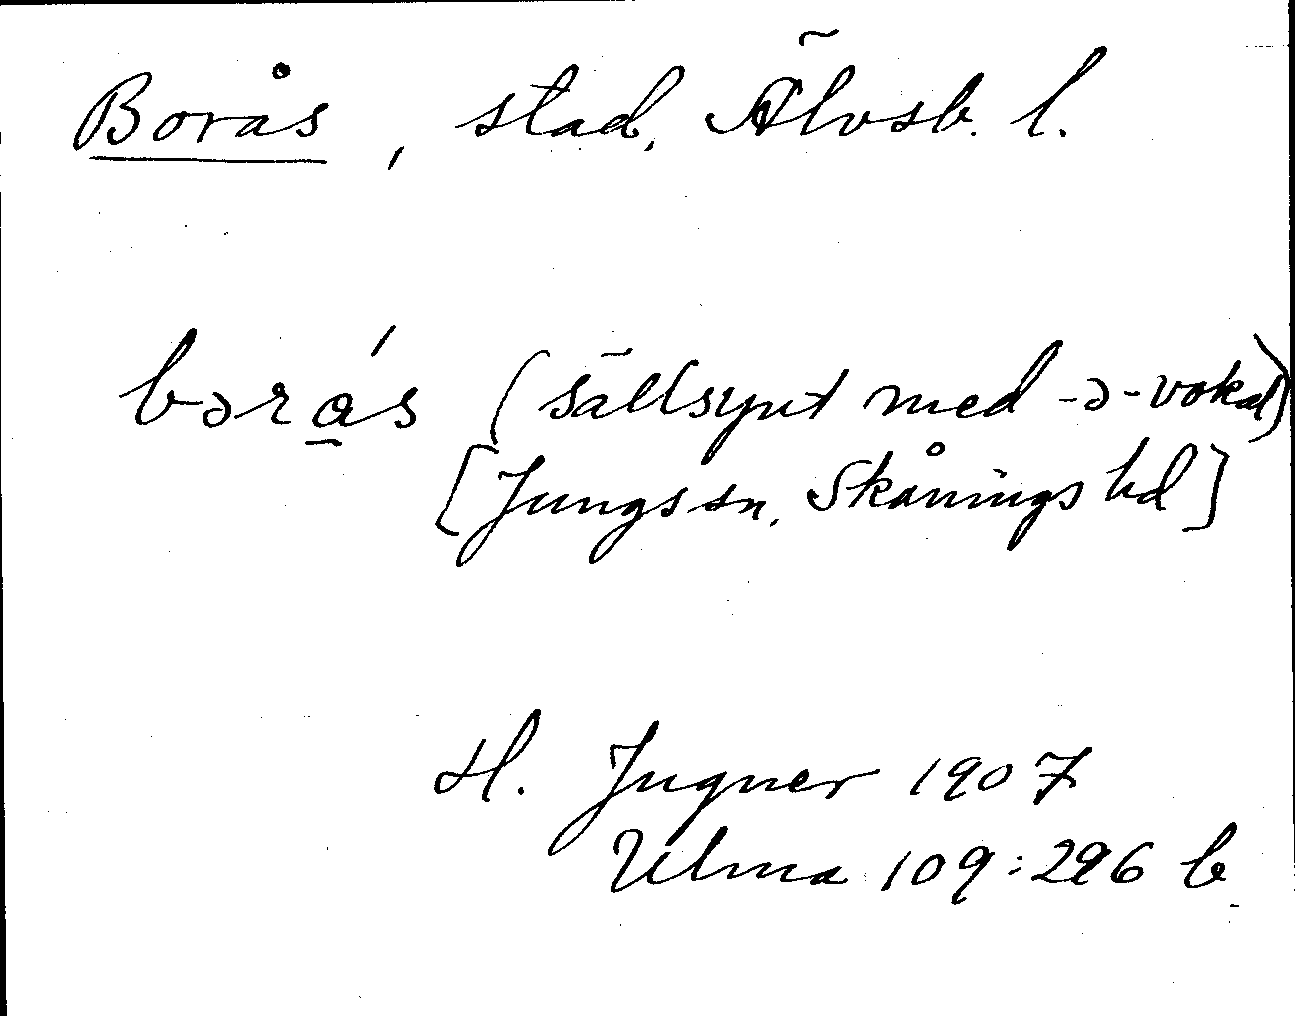 Borås, stad, Älvsb. l.
bərás (sällsynt med -ə-vokal)
[Jungs sn, Skånings hd]
H. Jugner 1907
Ulma 109:296 b